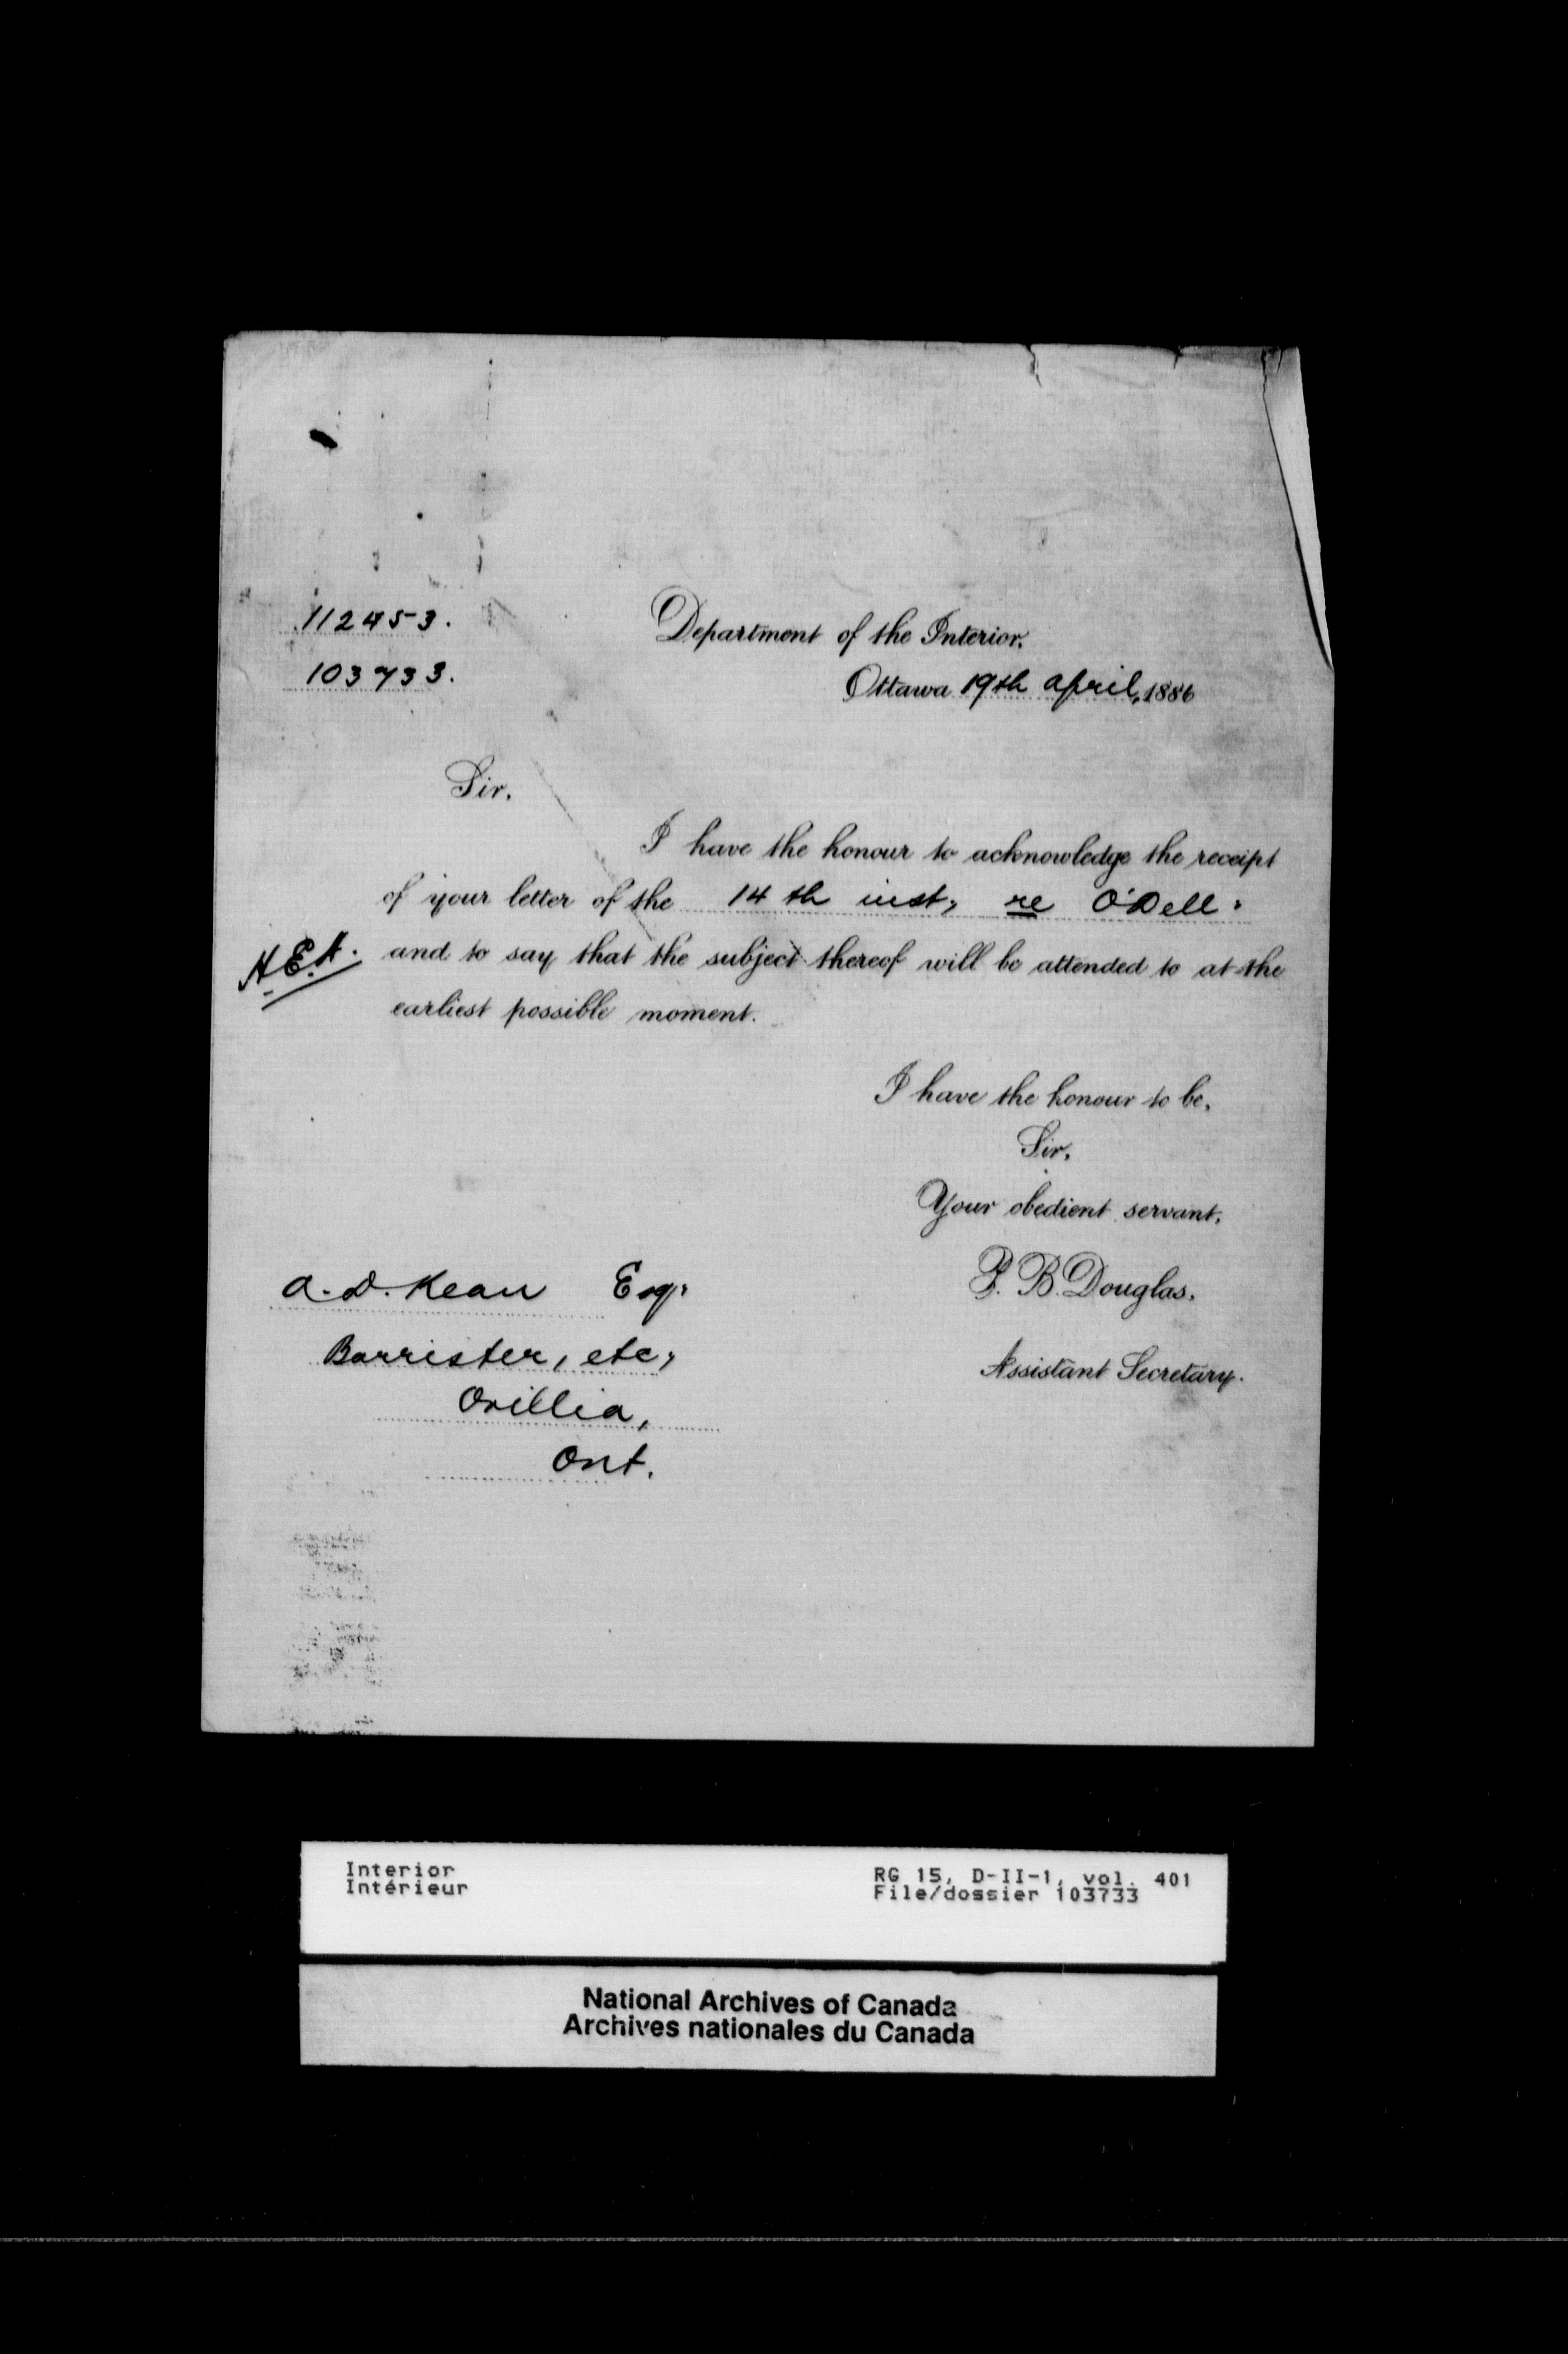 112453.
103733.
Department of the Interior.
Ottawa 19th April, 1886
Sir,
I have the honour to acknowledge the receipt
of your letter of the 14th inst, re O'Dell.
and to say that the subject thereof will be attended to at the
H.E.H.
earliest possible moment.
I have the honour to be,
Sir,
Your obedient servant,
P. B. Douglas.
Assistant Secretary.
A. D. Kean Esq.
Barrister, etc,
Orillia,
Ont.
Interior
Intérieur
RG 15, D-II-1, vol. 401
File/dossier 103733
National Archives of Canada
Archives nationales du Canada